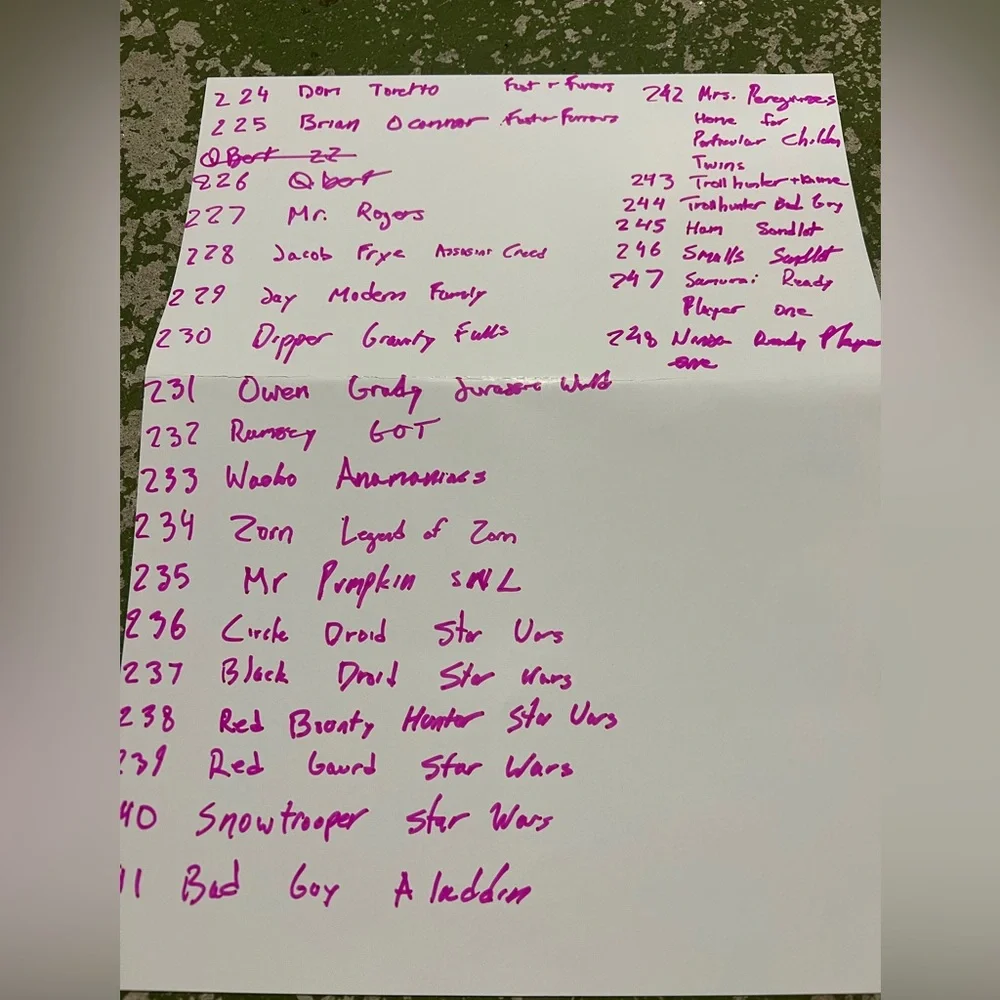 224 Dom Toretto Fast & Furious
225 Brian Oconnor Fast & Furious
QBert 22
226 Qbert
227 Mr. Rogers
228 Jacob Frye Assasins Creed
229 Jay Modern Family
230 Dipper Gravity Falls
231 Owen Grady Jurassic World
232 Ramsey GOT
233 Wakko Anamaniacs
234 Zorn Legend of Zorn
235 Mr Pumpkin SNL
236 Circle Droid Star Wars
237 Black Droid Star Wars
238 Red Bounty Hunter Star Wars
239 Red Gaurd Star Wars
40 Snowtrooper Star Wars
11 Bad Guy Aladdin
242 Mrs. Peregrines
Home for
Particular Children
Twins
243 Trollhunter +
244 Trollhunter Bad Guy
245 Ham Sandlot
246 Smalls Sandlot
247 Samurai Ready
Player one
248 Ready Player
one